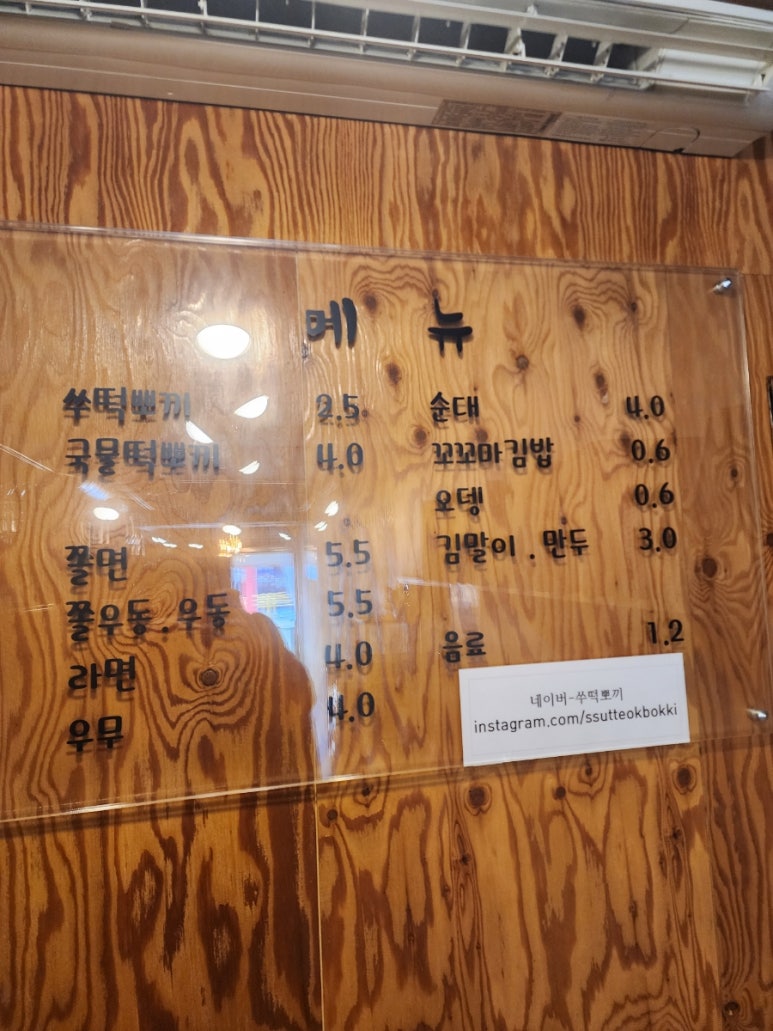 메뉴
쑤떡뽀끼 2.5
국물떡뽀끼 4.0
쫄면 5.5
쫄우동.우동 5.5
라면 4.0
우무 4.0
순대 4.0
꼬꼬마김밥 0.6
오뎅 0.6
김말이.만두 3.0
음료 1.2
네이버-쑤떡뽀끼
instagram.com/ssutteokbokki